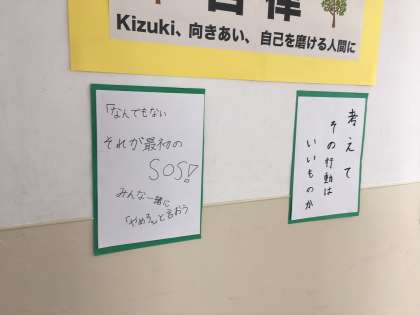 自律
Kizuki、向きあい、自己を磨ける人間に
「なんでもない
それが最初の
SOS!
みんな一緒に
「やめろ」と言おう
考えて
その行動は
いいものか